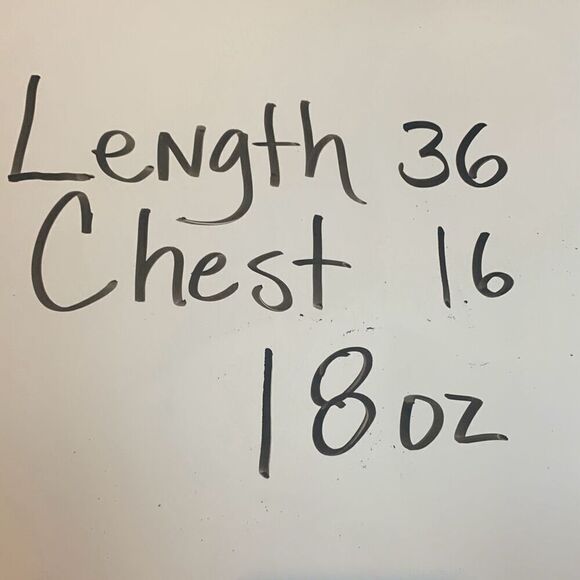 Length 36
Chest 16
18 oz